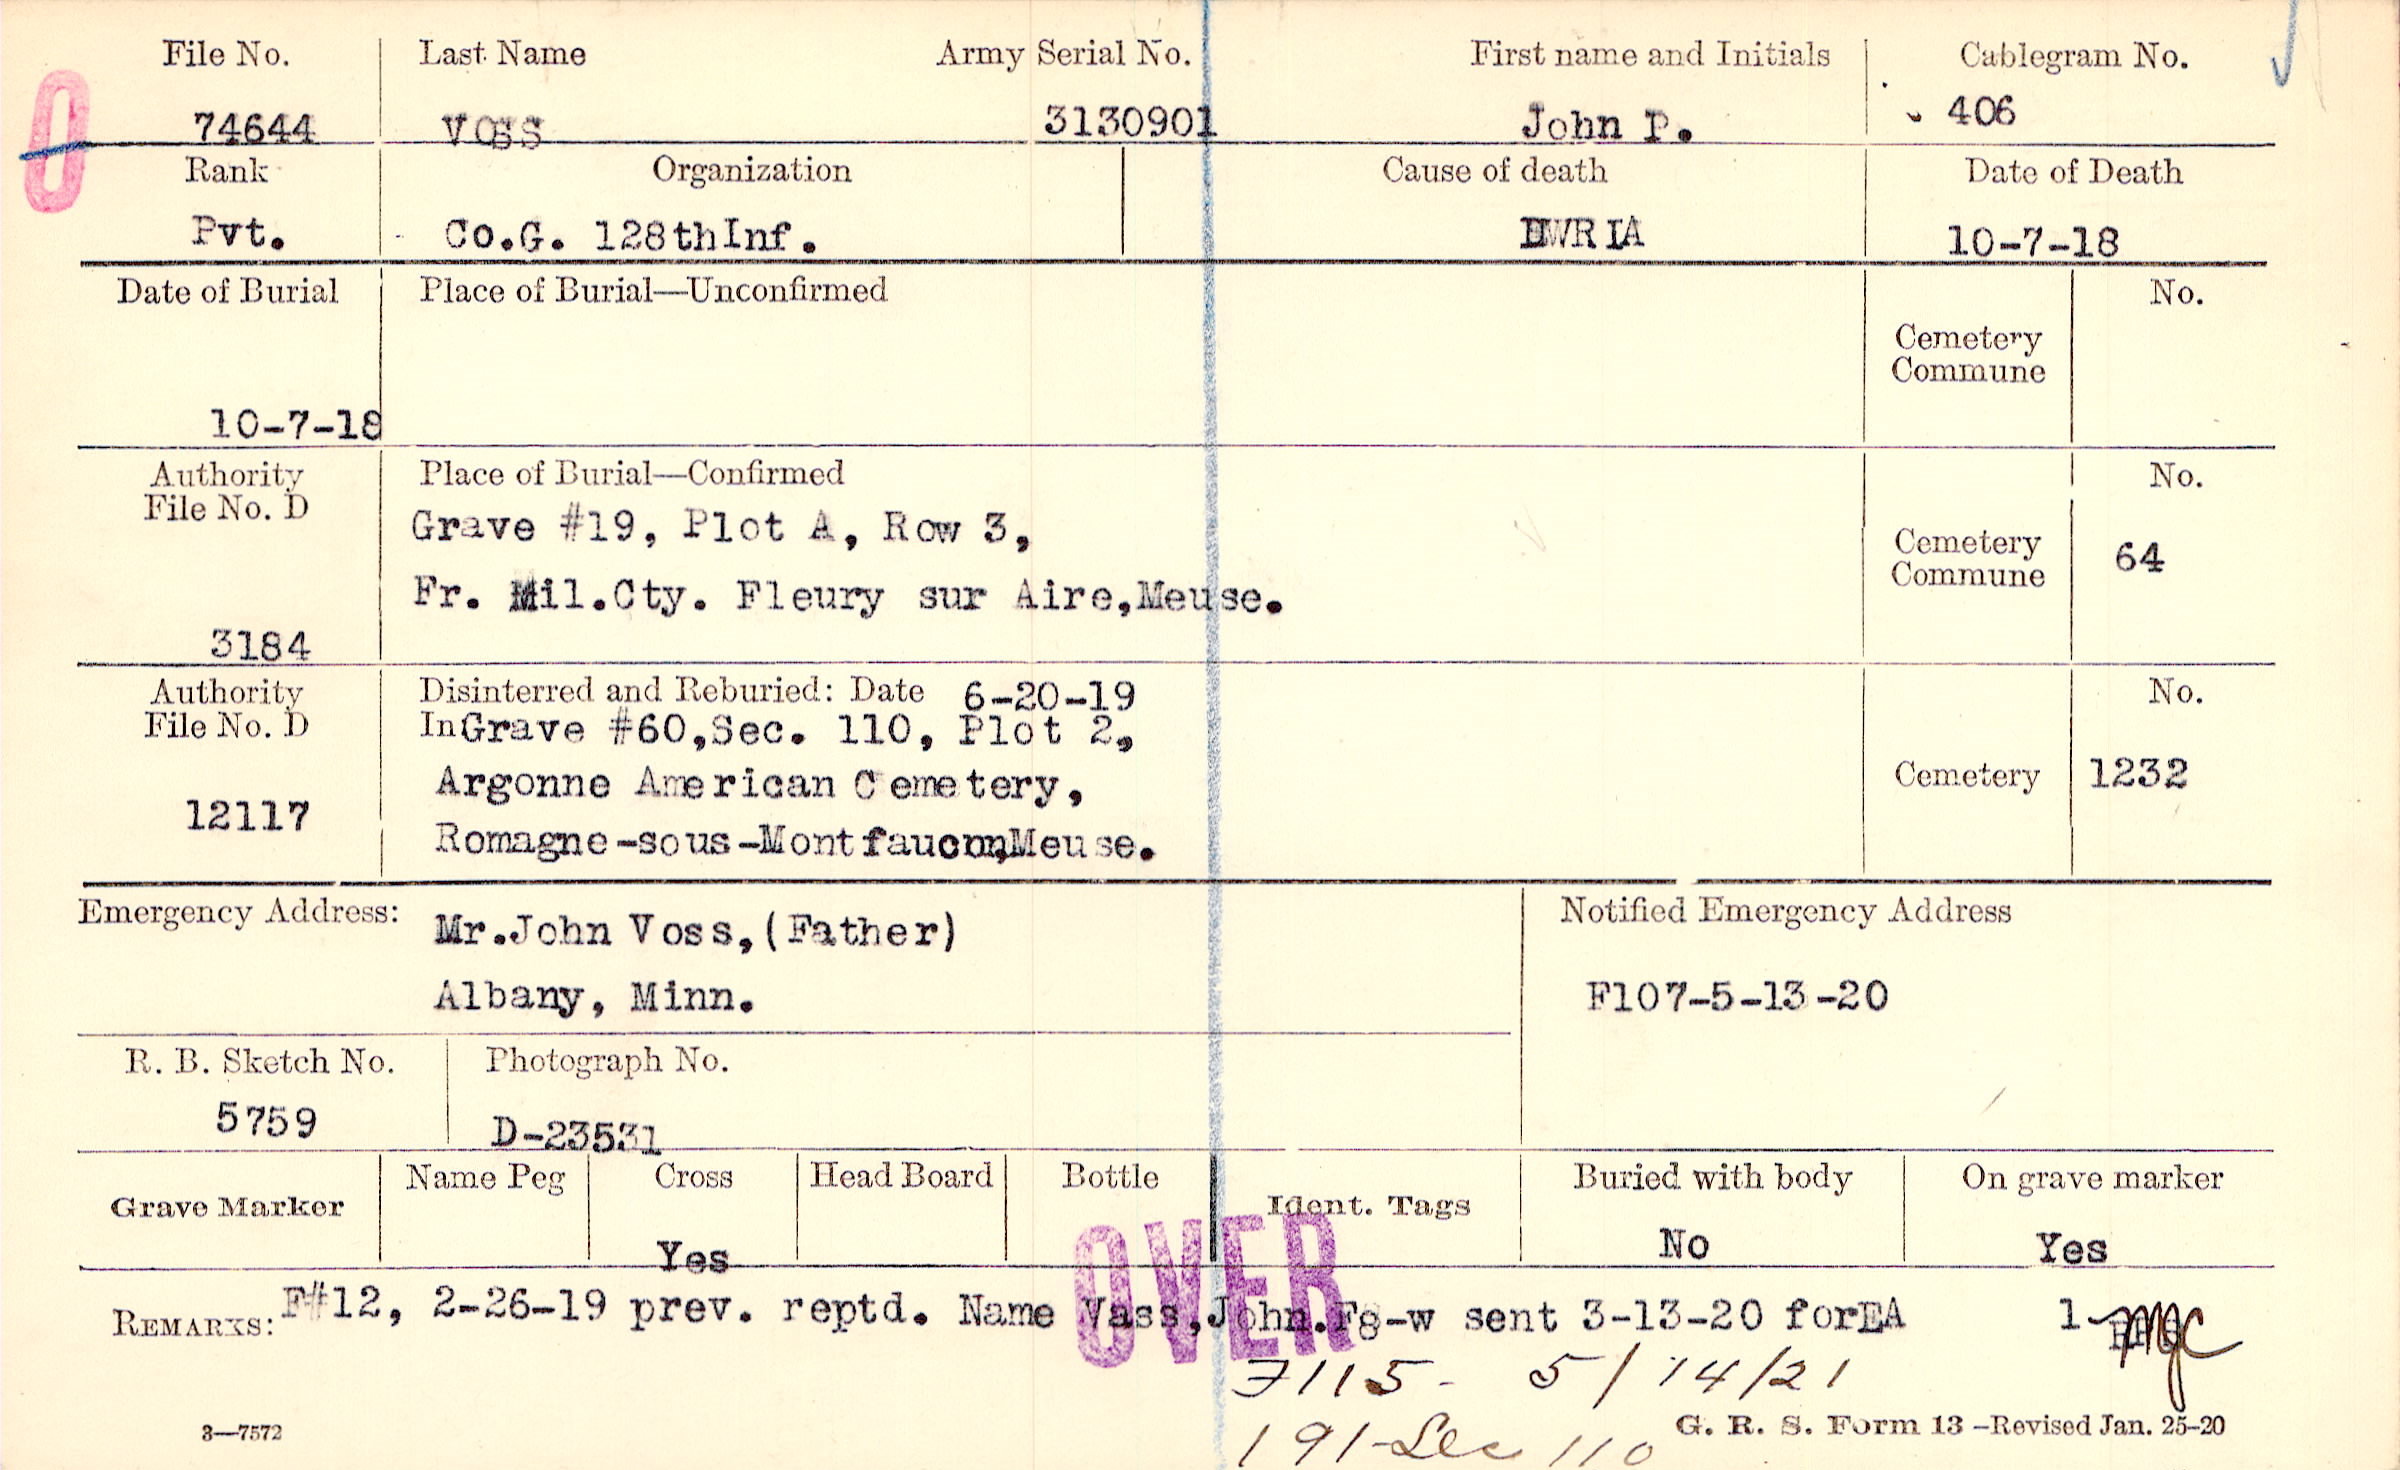 File No. Last Name Army Serial No. First name and Initials Cablegram No.
74644 VOSS 3130901 John P. 406
Rank Organization Cause of death Date of Death
Pvt. Co.G. 128thInf. DWRIA 10-7-18
Date of Burial Place of Burial—Unconfirmed No.
Cemetery
Commune
10-7-18
Authority Place of Burial—Confirmed No.
File No. D
Grave #19, Plot A, Row 3,
Cemetery 64
Commune
Fr. Mil.Cty. Fleury sur Aire,Meuse.
3184
Authority Disinterred and Reburied: Date 6-20-19 No.
File No. D InGrave #60,Sec. 110, Plot 2,
Argonne American Cemetery, Cemetery 1232
12117
Romagne-sous-Montfaucon,Meuse.
Emergency Address: Mr.John Voss,(Father) Notified Emergency Address
Albany, Minn. F107-5-13-20
R. B. Sketch No. Photograph No.
5759 D-23531
Grave Marker Name Peg Cross Head Board Bottle Ident. Tags Buried with body On grave marker
Yes No Yes
OVER
REMARKS: F#12, 2-26-19 prev. reptd. Name Vass,John.F8-w sent 3-13-20 forEA 1-
7115- 5/14/21
191-Sec 110
3—7572 G. R. S. Form 13 —Revised Jan. 25-20